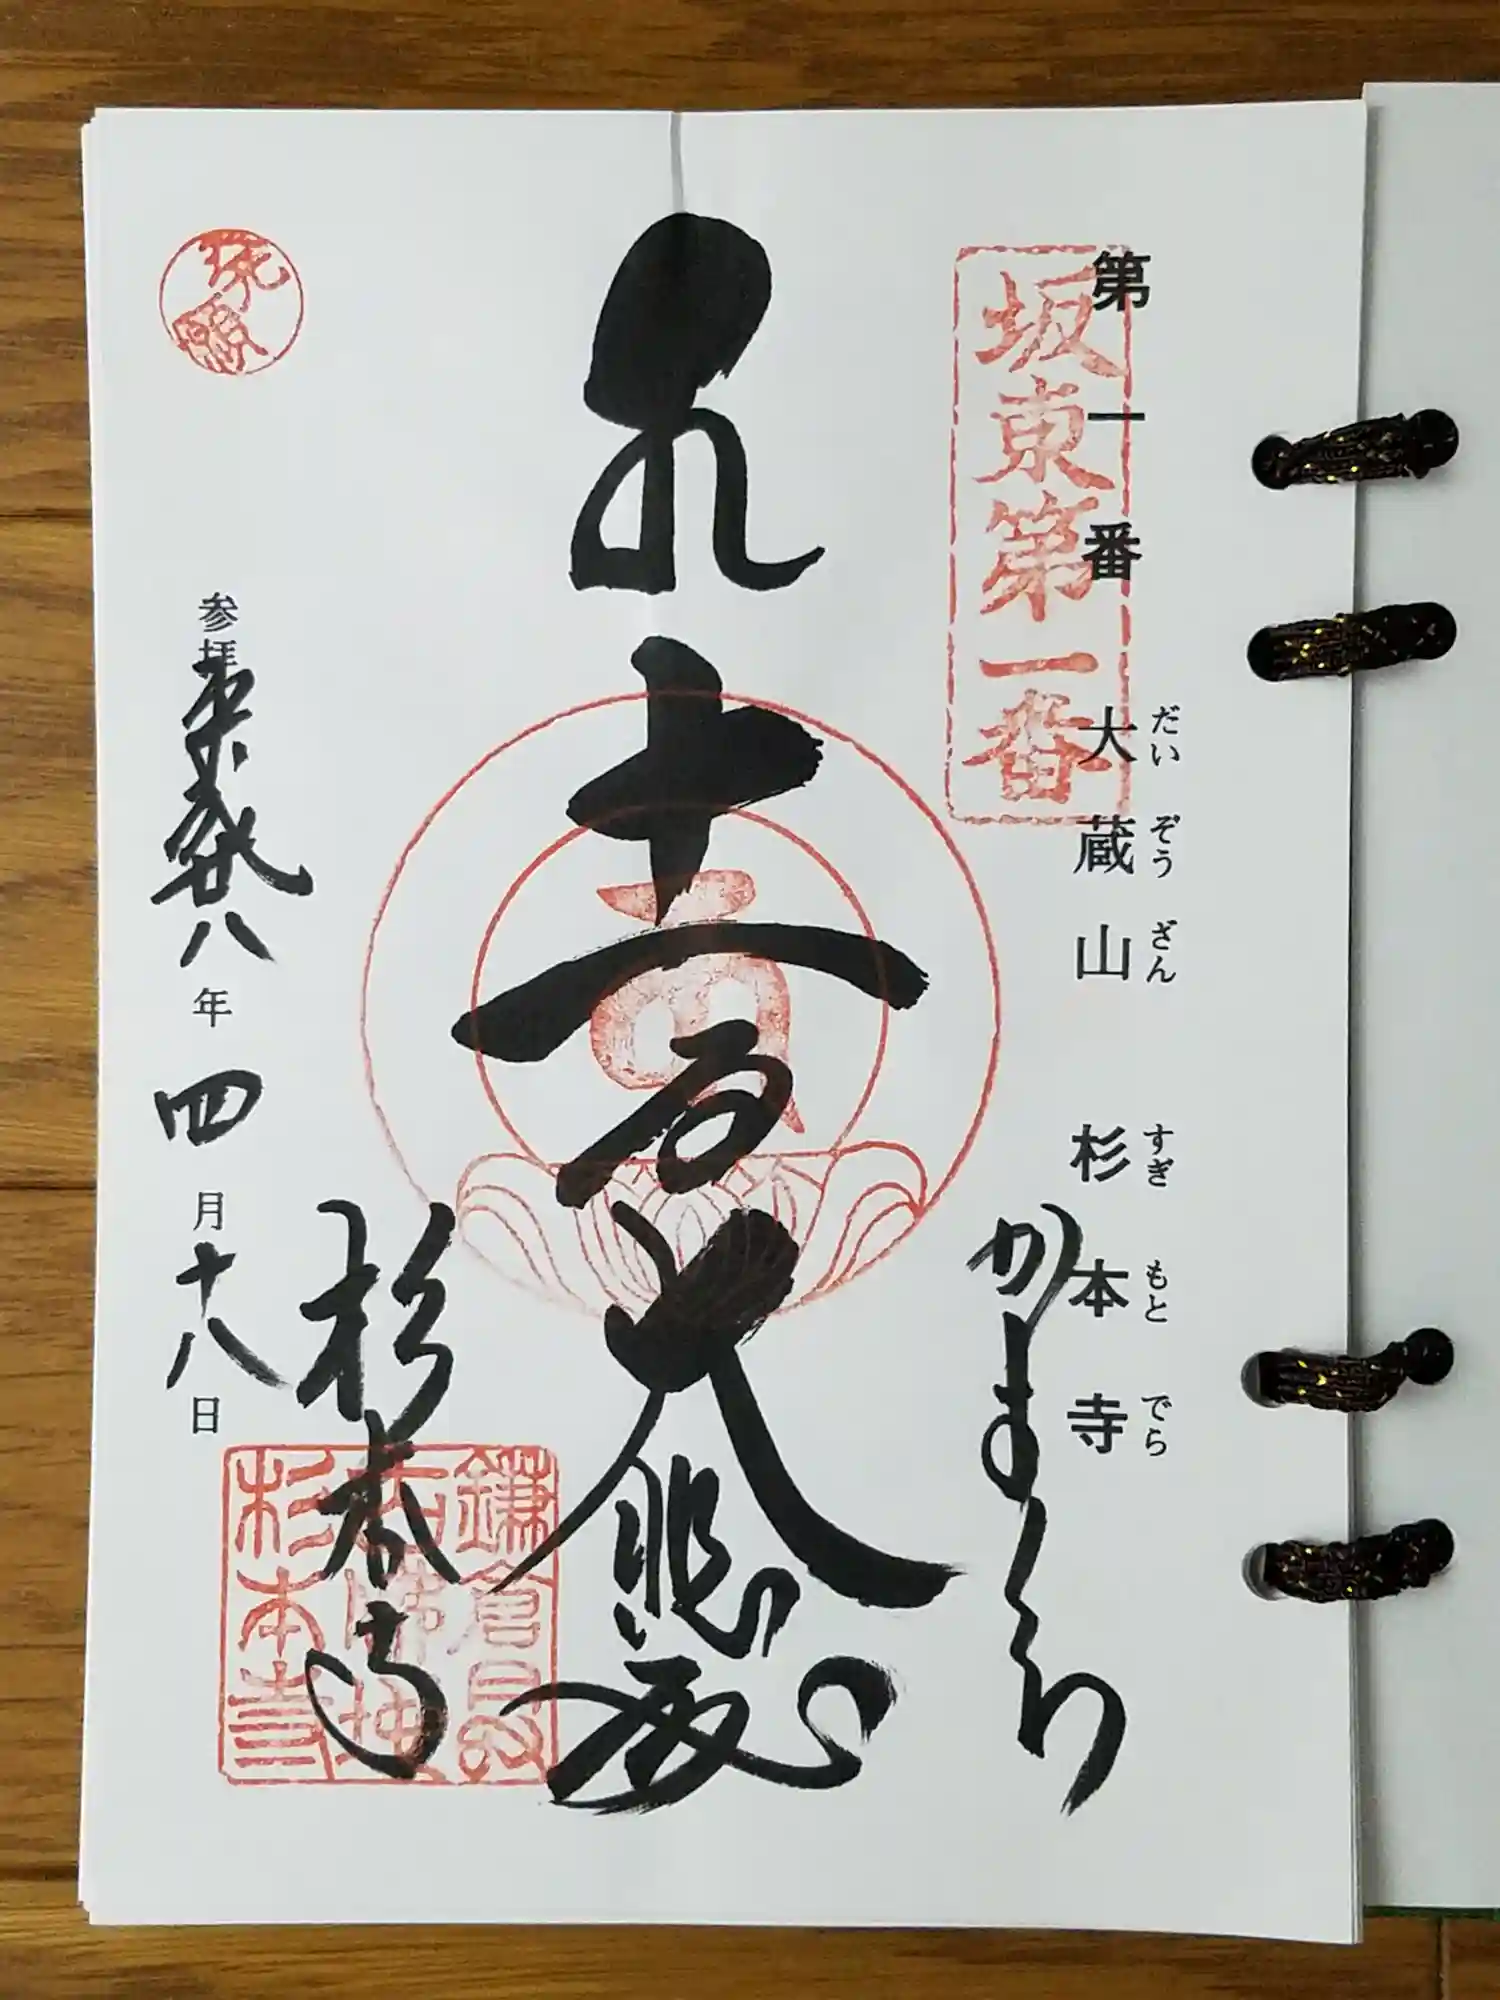 第一番 大蔵山 杉本寺
だいぞうざん すぎもとでら
坂東第一番
かまくら
十一面大悲殿
杉本寺
鎌倉
杉本寺
参拝 平成廿八年 四月十八日